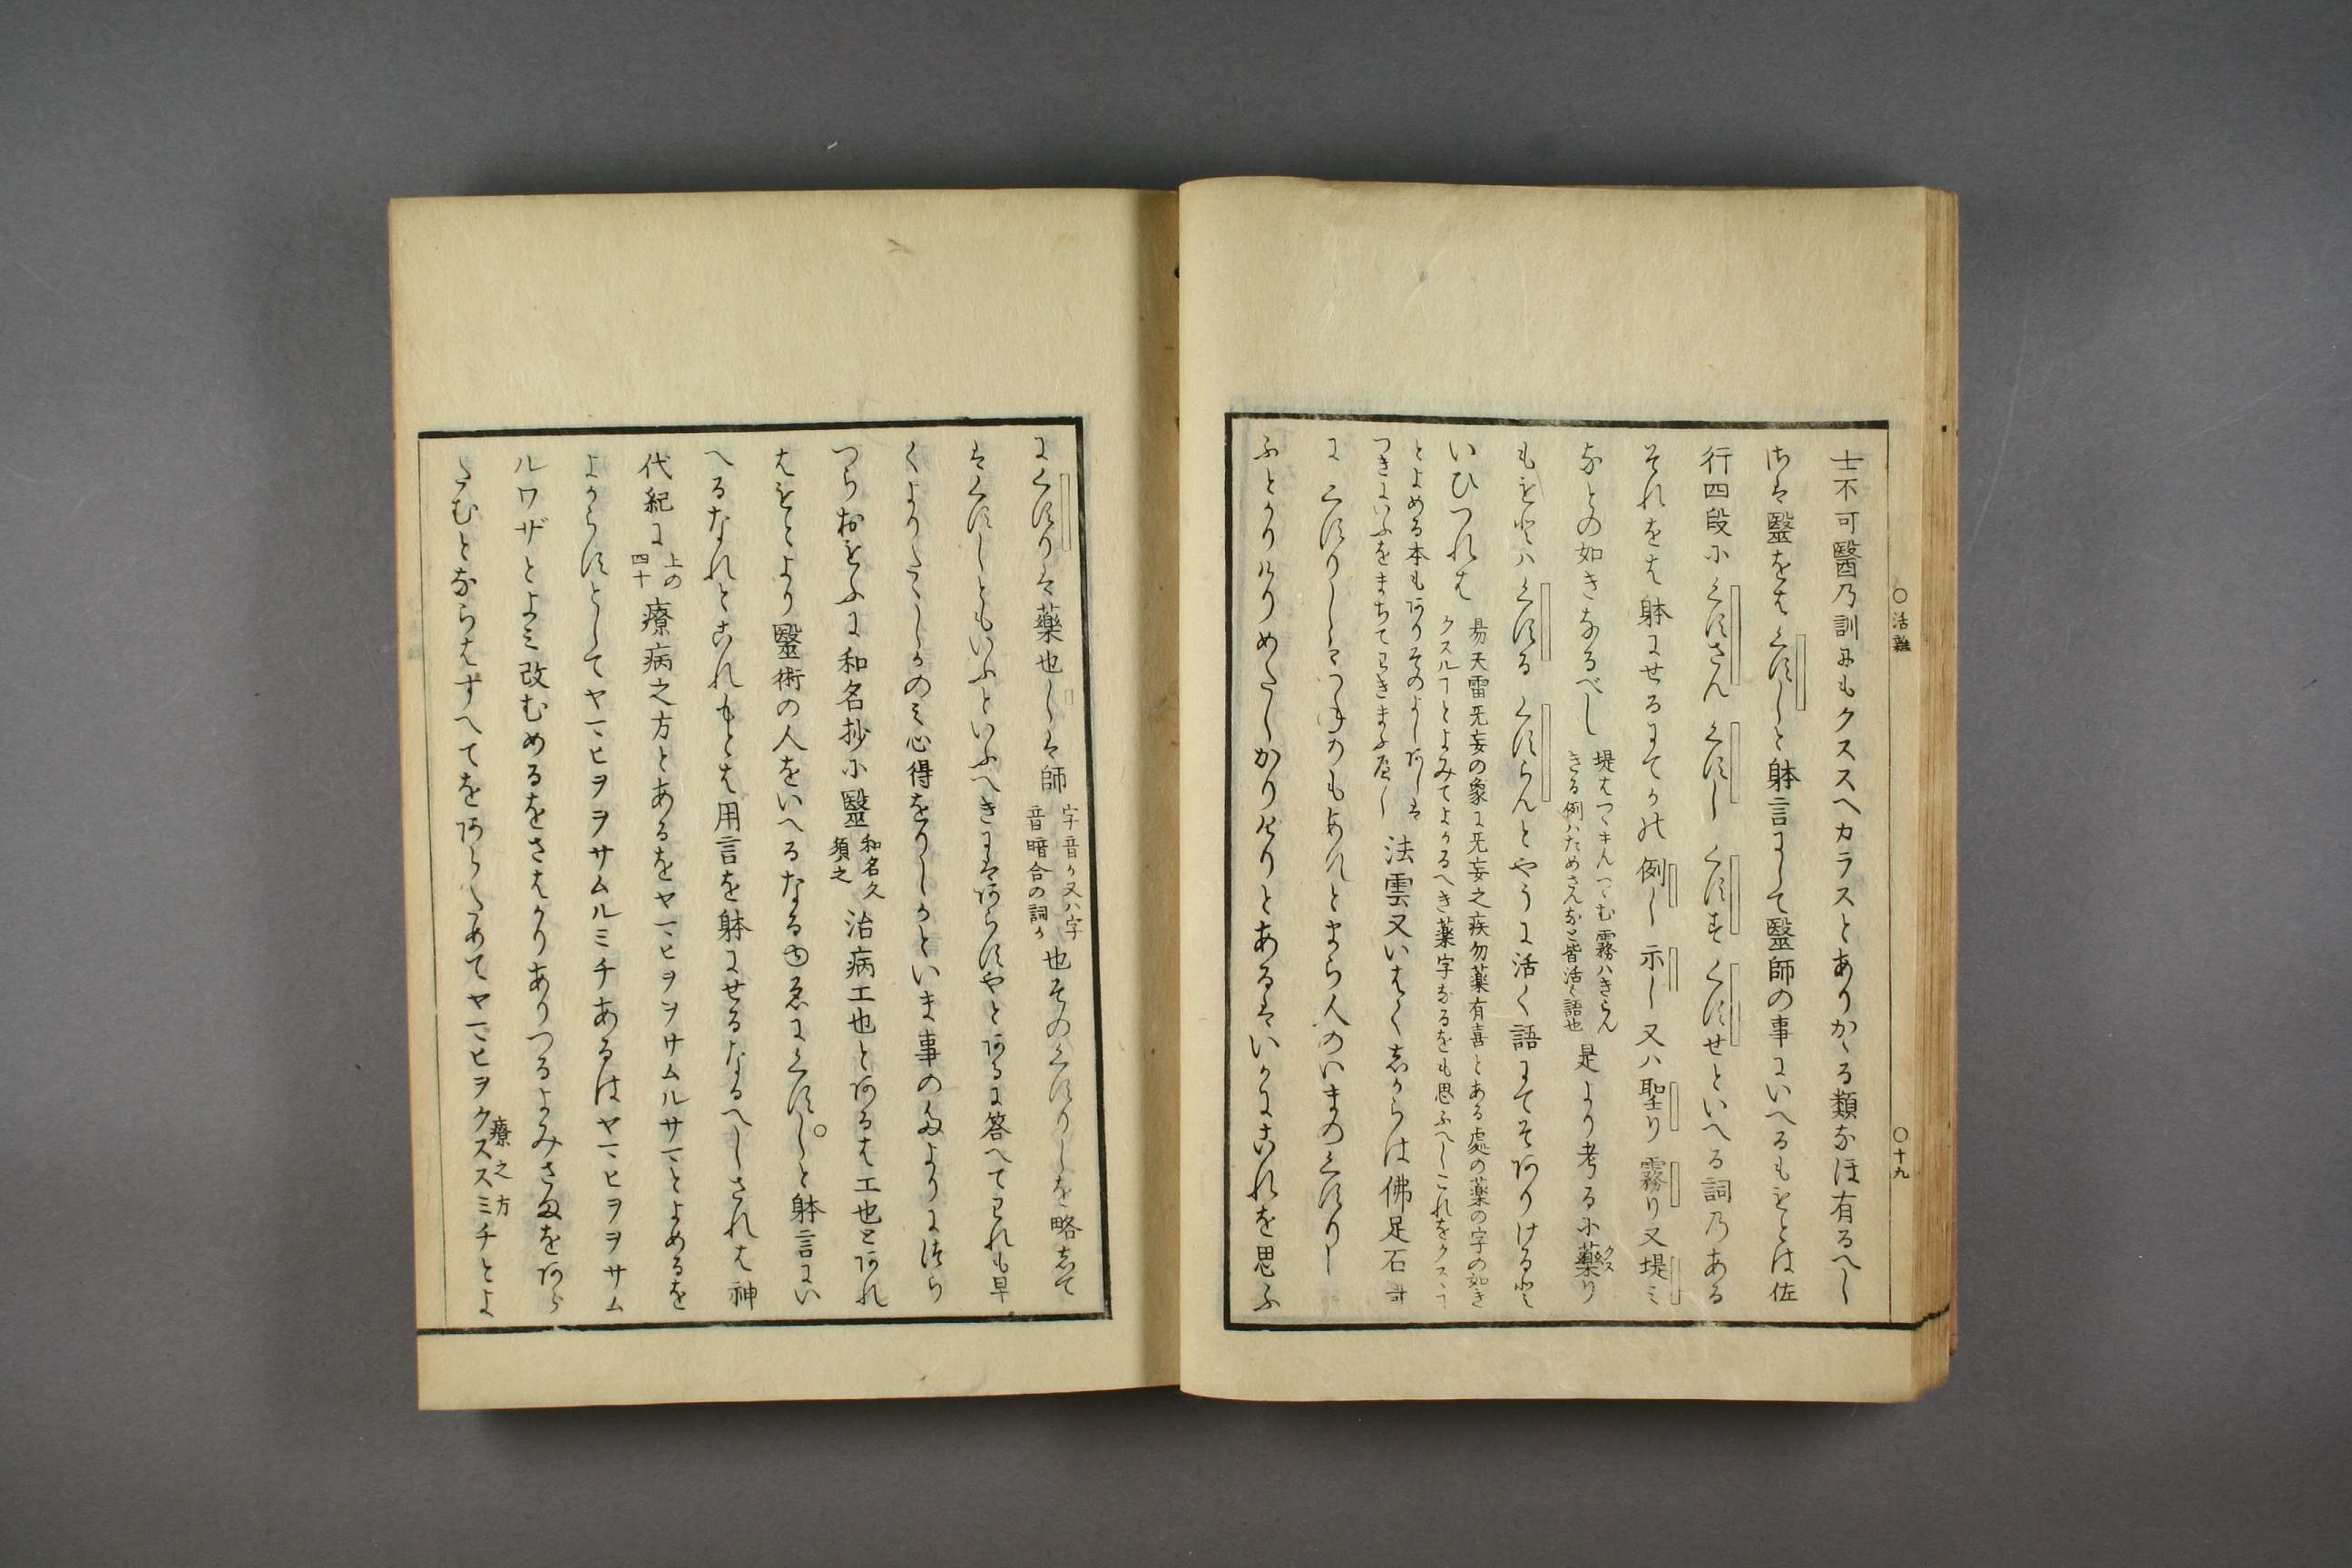 士不可醫乃訓にもクススヘカラスとありかゝる類なほ有るへし
さは醫をはくすしと躰言にして醫師の事にいへるもをとは佐
行四段にくすさん くすし くすす くすせといへる詞乃ある
それをは躰にせるにてかの例し 示し 又ハ聖り 霧り又堤ミ
などの如きなるべし
堤はつゝまんつゝむ霧ハきらん
きる例ハためさんなと皆活く語也
是より考るに藥り
クス
もをとハくする くすらんとやうに活く語にてそありけると
いひつれは
易天雷无妄の象に无妄之疾勿藥有喜とある處の藥の字の如き
クスルヿとよみてよかるへき藥字なるをも思ふへしこれをクスヽヿ
とよめる本もありそのよしあしは
つきにいふをまちてわきまふへし
法雲又いはくしからは佛足石謌
にくすりしはつねのもあれとまら人のいまのくすりし
ふとかりけりめたしかりけりとあるはいかにこれを思ふ
にくすりは藥也しは師
字音か又ハ字
音暗合の詞か
也そのくすりしを略して
はくすしともいふといふへきにはあらすやとあるに答へてわれも早
くよりたゝしかのミ心得をりしかといま事のたよりにつら
つらおもふに和名抄に醫
和名久
須之
治病工也とあるは工也とあれ
はもとより醫術の人をいへるなるゆゑにくすしと躰言にい
へるなれとこれもとは用言を躰にせるなるへしされは神
代紀に
上の
四十
療病之方とあるをヤマヒヲヲサムルサマとよめるを
よからすとしてヤマヒヲヲサムルミチあるはヤマヒヲヲサム
ルワザとよミ改むめるをさはかりありつるよみさまをあら
たむとならはすへてをあらためてヤマヒヲクススミチとよ
療之方
○活雜
○十九